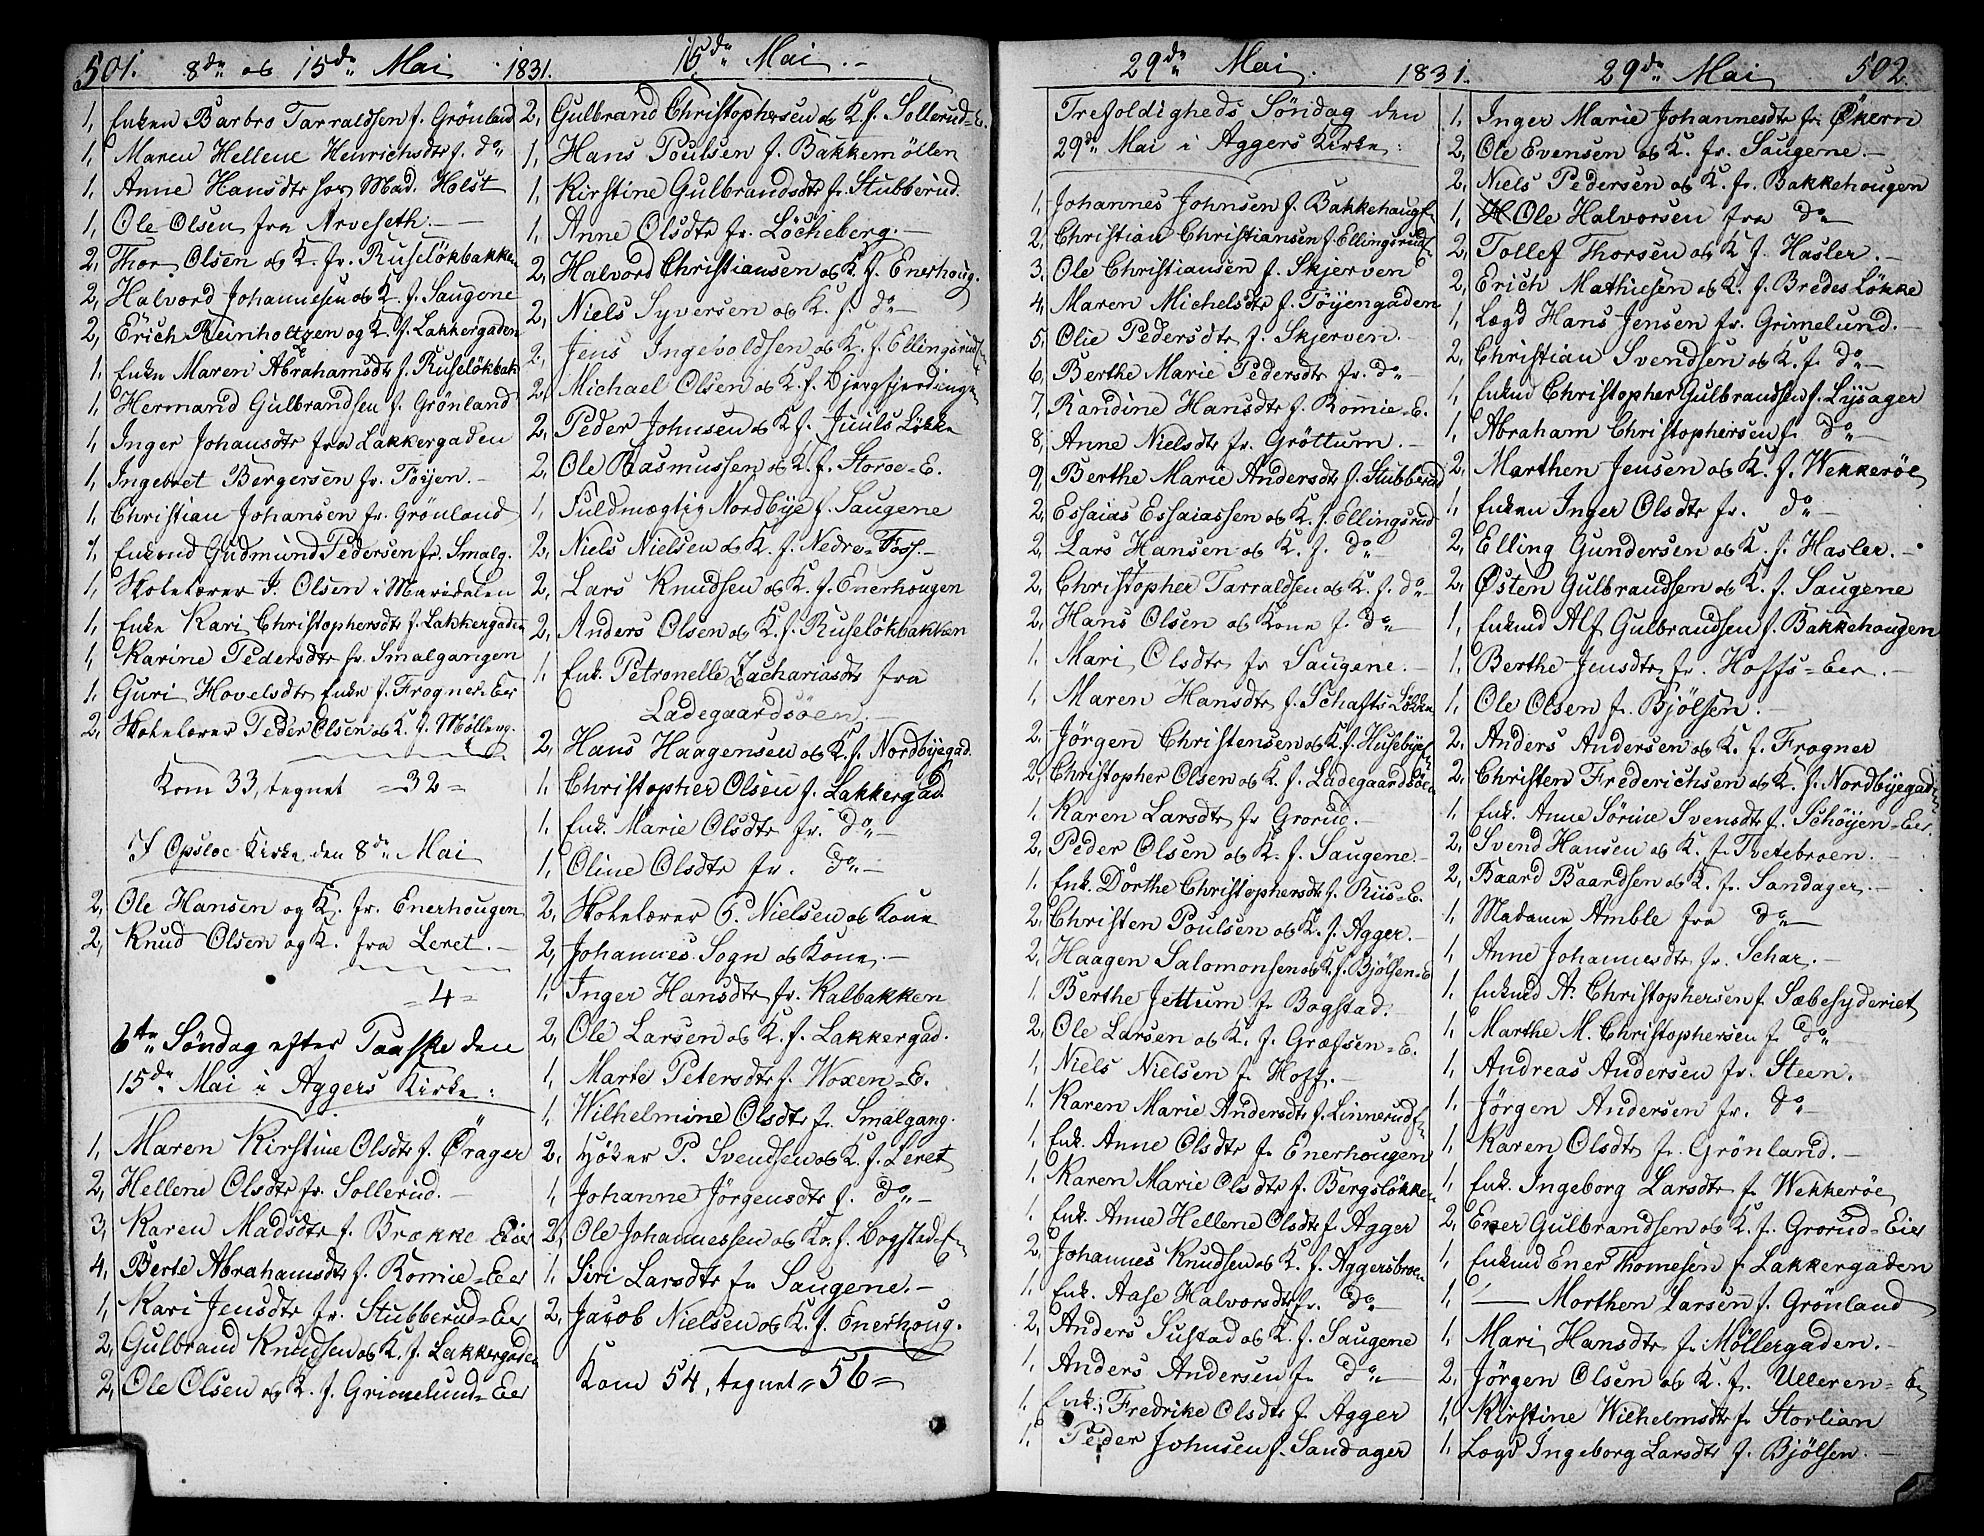 501. 8de og 15de Mai 1831. 15de Mai.
1, Enken Barbro Tarraldsen f. Grönland
1, Maren Hellene Henrichsdtr f. do
1, Anne Hansdtr hos Mad. Holst
1, Ole Olsen fra Arveseth.
2, Thor Olsen og K. fr. Ruseløkbakken
2, Halvord Johannesen og K. f. Saugene
2, Erich Reinholtzen og K. f. Lakkergaden
1, Enke Maren Abrahamsdtr f. Ruseløkbak
1, Hermand Gulbrandsen f. Grönland
1, Inger Johansdtr fra Lakkergaden
1, Ingebret Bergersen fr. Töyen.
1, Christian Johansen fr. Grönland
1, Enkemd Gudmund Pedersen fr. Smalg.
1, Skolelærer J. Olsen i Maridalen
1, Enke Kari Christophersdtr f. Lakkergaden
1, Karine Pedersdtr fr. Smalgangen
1, Guri Hovelsdtr Enke f. Frogner-Eier
2, Skolelærer Peder Olsen og K. f. Møllerg.
Kom 33, tegnet =32=
I Opsloe Kirke den 8de Mai
2, Ole Hansen og K. fr. Enerhougen
2, Knud Olsen og K. fra Leret.
=4=
6te Søndag efter Paaske den
15de Mai i Aggers Kirke:
1, Maren Kirstine Olsdtr f. Örager
2, Hellene Olsdtr fr. Sollerud.
3, Karen Madsdtr f. Brække Eier
4, Berte Abrahamsdtr f. Komie=Eier
1, Kari Jensdtr fr. Stubberud=Eier
2, Gulbrand Knudsen og K. f. Lakkergaden
2, Ole Olsen og K. f. Grimelund=Eier
2, Gulbrand Christophersen og K. f. Sollerud-E.
1, Hans Poulsen f. Bakkemöllen
1, Kirstine Gulbrandsdtr fr. Stubberud.
1, Anne Olsdtr fr. Löcheberg.
2, Halvord Christiansen og K. f. Enerhoug.
2, Niels Syversen og K. f. do
2, Jens Ingevoldsen og K. f. Ellingsrud
2, Michael Olsen og K. f. Bjergfjerdingen
2, Peder Johnsen og K. f. Juuls Løkke
2, Ole Rasmussen og K. f. Storoe-E.
1, Fuldmægtig Nordbye f. Saugene
2, Niels Nielsen og K. f. Nedre=Foss.
2, Lars Knudsen og K. f. Enerhougen
2, Anders Olsen og K. f. Ruseløkbakken
1, Enk. Petronelle Zachariasdtr fra
Ladegaardsöen.
2, Hans Haagensen og K. f. Nordbyegad.
1, Christopher Olsen f. Lakkergad.
1, Enk. Marie Olsdtr fr. do
1, Oline Olsdtr fr. do
2, Skolelærer P. Nielsen og Kone
2, Johannes Sogn og Kone.
1, Inger Hansdtr fr. Kalbakken
2, Ole Larsen og K. f. Lakkergad.
1, Marte Petersdtr f. Woxen-E.
1, Wilhelmine Olsdtr fr. Smalgang.
2, Höker P. Svendsen og K. f. Leret
1, Johanne Jörgensdtr f. do
2, Ole Johannessen og Ko. f. Bogstad
1, Siri Larsdtr fr Saugene.
2, Jacob Nielsen og K. f. Enerhoug.
Kom 54, tegnet =56=
29de Mai. 1831. 29de Mai 502.
Trefoldigheds Söndag den
29de Mai i Aggers Kirke:
1, Johannes Johnsen f. Bakkehaug
2, Christian Christiansen f. Ellingsrud
3, Ole Christiansen f. Skjerven
4, Maren Michelsdtr f. Töyengaden
5, Olie Pedersdtr f. Skjerven.
6, Berthe Marie Pedersdtr fr. do
7, Randine Hansdtr f. Komie-E.
8, Anne Nielsdtr fr. Gröttum.
9, Berthe Marie Andersdtr f. Stubberud
2, Essaias Essaiassen og K. f. Ellingsrud
2, Lars Hansen og K. f. do
2, Christopher Tarraldsen og K. f. do
2, Hans Olsen og Kone f. do
1, Mari Olsdtr fr Saugene.
1, Maren Hansdtr f. Schafts Løkke
2, Jörgen Christensen og K. f. Husebye
2, Christopher Olsen og K. f. Ladegaardsöen
1, Karen Larsdtr fr Grorud.
2, Peder Olsen og K. f. Saugene
1, Enk. Dorthe Christophersdtr f. Riis-E.
2, Christen Poulsen og K. f. Agger.
2, Haagen Salomonsen og K. f. Bjølsen-E
1, Berthe Jettum fr Bogstad.
2, Ole Larsen og K. f. Græfsen-E.
1, Niels Nielsen f. Hoff.
1, Karen Marie Andersdtr f. Linnerud
1, Enk. Anne Olsdtr fr Enerhougen
1, Karen Marie Olsdtr f. Bergsløkken
1, Enk. Anne Hellene Olsdtr f. Agger
2, Johannes Knudsen og K. f. Aggersbroen
1, Enk. Aase Halvorsdtr fr. do
2, Anders Sustad og K. f. Saugene
1, Anders Andersen fr do
1, Enk. Fredrike Olsdtr f. Agger
1, Peder Johnsen f. Sandager
1, Inger Marie Johannesdtr fr. Økern
2, Ole Evensen og K. fr. Saugerne.
2, Niels Pedersen og K. fr. Bakkehougen
1, Ole Halvorsen fra do
2, Tollef Thorsen og K. f. Hasler.
2, Erich Mathiesen og K. f. Bredes Løkke
1, Lægd Hans Jensen fr. Grimelund.
2, Christian Svendsen og K. f. do
1, Enkemd Christopher Gulbrandsen f. Lysager
1, Abraham Christophersen fr do
2, Marthen Jensen og K. f. Wekkeröe
1, Enken Inger Olsdtr fr. do
2, Elling Gundersen og K. f. Hasler.
2, Østen Gulbrandsen og K. f. Saugene
1, Enkemd Alf Gulbrandsen f. Bakkehougen
1, Berthe Jensdtr fr. Hoffs-Eier.
1, Ole Olsen fr. Bjölsen.
2, Anders Andersen og K. f. Frogner
2, Christen Frederichsen og K. f. Nordbyegad
1, Enk. Anne Sörine Svensdtr f. Schöyen-Eier.
2, Svend Hansen og K. fr. Tvetebroen.
2, Baard Baardsen og K. fr. Sandager.
1, Madame Amble fra do
1, Anne Johannesdtr fr. Schar.
1, Enkemd A. Christophersen f. Sæbesyderiet
1, Marthe M. Christophersen f. do
1, Andreas Andersen fr. Steen.
1, Jörgen Andersen fr. do
1, Karen Olsdtr fr. Grönland.
1, Enk. Ingeborg Larsdtr fr Wekkeröe
2, Ener Gulbrandsen og K. f. Grorud=Eier
1, Enkemd Ener Thomesen f. Lakkergaden
1, — Morthen Larsen f. Grönland
1, Mari Hansdtr fr. Möllergaden.
2, Jörgen Olsen og K. fr. Ulleren=E
1, Kirstine Wilhelmsdtr fr Storlian
1, Lægd Ingeborg Larsdtr f. Bjölsen.